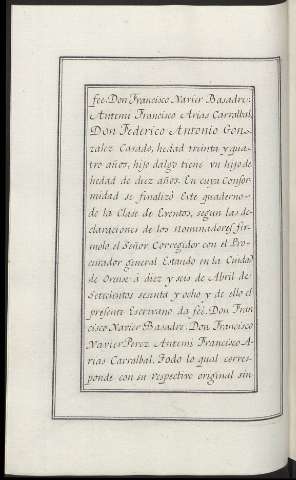 fee: Don Francisco Xavier Basadre:
Antemi Francisco Arias Carralbal,
Don Federico Antonio Gon-
zalez Casado, hedad treinta y qua-
tro años, hijo dalgo tiene un hijo de
hedad de diez años. En cuya Confor-
midad se finalizó Este quaderno
de la Clase de Exentos, segun las de-
claraciones de los nominadores, fir-
molo el Señor Corregidor con el Pro-
curador general Estando en la Ciudad
de Orense a diez y seis de Abril de
Settecientos sesenta y ocho y de ello el
presente Escrivano da feè. Don Fran
cisco Xavier Basadre: Don Francisco
Xavier Perez Antemi Francisco A-
rias Carralbal. Todo lo qual corres-
ponde con su respective original sin